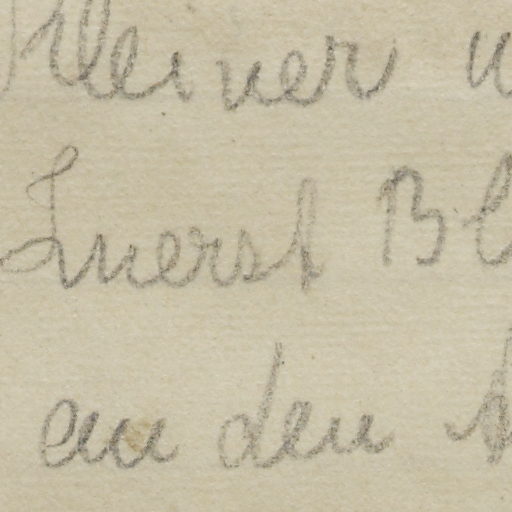 kleiner
Zuerst Bl
an den